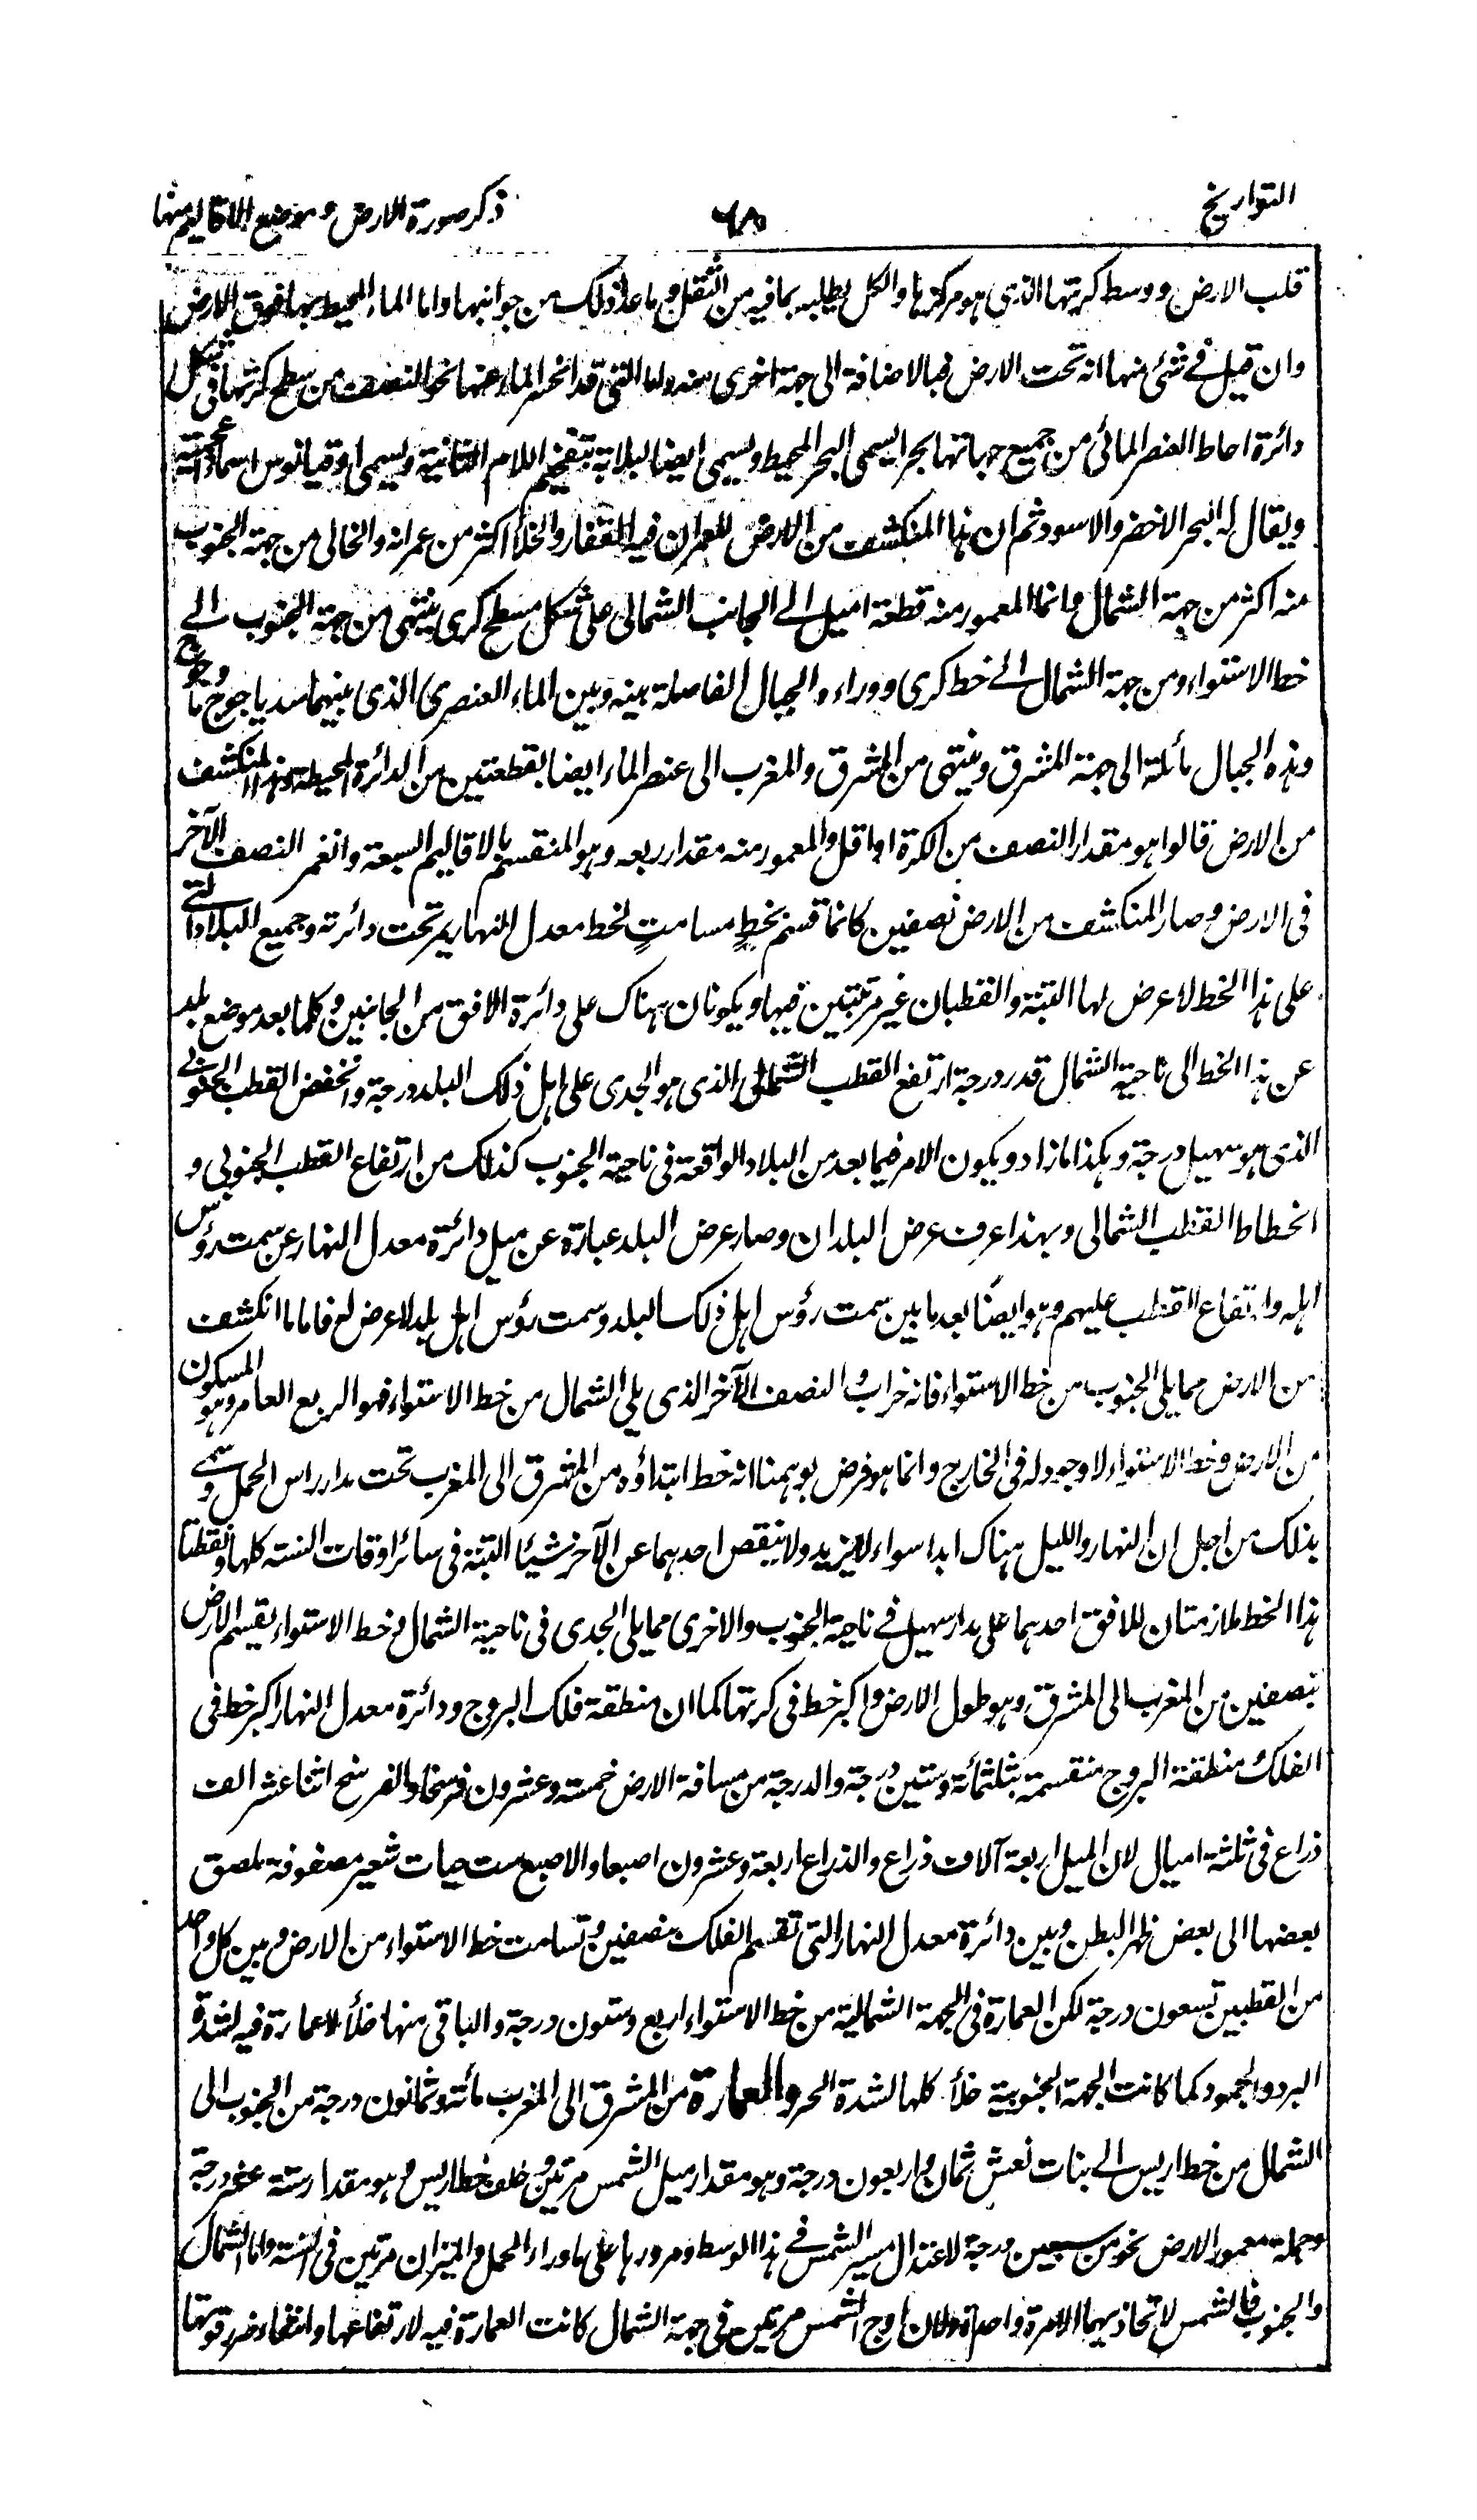 التواريخ
٦٨
ذكر صورة الارض و موضع الاقاليم منها
قلب الارض و وسط كريتها الذى هو مركزها والكل يطلبه بما فيه من الثقل وما عدا ذلك من جوانبها واما الماء المحيط بها فوق الارض
وان قيل فى شئى منها انه تحت الارض فبالاضافة الى جهة اخرى منه واما التى قد انحسر الماء عنها نحو النصف من سطح كرتها فى شكل
دائرة احاط العنصر المائى من جميع جهاتها بحر ايسمى البحر المحيط ويسمى ايضا لبلاية بتفخيم اللام الثانية ويسمى اوقيانوس اسماء عجمية
ويقال له البحر الاخضر والاسود ثم ان هذا المنكشف من الارض للعمران فيه القفار والخلأ اكثر من عمرانه والخالى من جهة الجنوب
منه اكثر من جهة الشمال وانما المعمور منه قطعة اميل الى الجانب الشمالى على شكل مسطح كرى ينتهى من جهة الجنوب الى
خط الاستواء ومن جهة الشمال الى خط كرى ووراءه الجبال الفاصلة بينه وبين الماء العنصرى الذى بينهما سد ياجوج ماجوج
وهذه الجبال مائلة الى جهة المشرق وينتهى من المشرق والمغرب الى عنصر الماء ايضا بقطعتين من الدائرة المحيطة وهذا المنكشف
من الارض قالوا هو مقدار النصف من الكرة او اقل والمعمور منه مقدار ربعه وهو المنقسم بالاقاليم السبعة وانغمر النصف الآخر
فى الارض وصار المنكشف من الارض نصفين كانما قسم بخطٍ مسامتٍ لخط معدل النهار يمر تحت دائرته وجميع البلاد التى
على هذا الخط لا عرض لها البتة والقطبان غير مرتبتين فيها ويكونان هناك على دائرة الافق من الجانبين وكلما بعد موضع بلد
عن هذا الخط الى ناحية الشمال قدر درجة ارتفع القطب الشمالى الذى هو الجدى على اهل ذلك البلد درجة وانخفض القطب الجنوبى
الذى هو سهيل درجة وهكذا ما زاد ويكون الامر فيما بعد من البلاد الواقعة فى ناحية الجنوب كذلك من ارتفاع القطب الجنوبى و
انحطاط القطب الشمالى وبهذا عرف عرض البلدان وصار عرض البلد عبارة عن ميل دائرة معدل النهار عن سمت رؤس
اهله وارتفاع القطب عليهم وهو ايضًا بعد ما بين سمت رؤس اهل ذلك البلد وسمت رؤس اهل بلد لا عرض له فاما ما انكشف
من الارض مما يلى الجنوب من خط الاستواء فانه خراب والنصف الآخر الذى يلى الشمال من خط الاستواء فهو الربع العامر وهو المسكون
من الارض وخط الاستواء لا وجود له فى الخارج وانما هو فرض بوهمنا انه خط ابتداؤه من المشرق الى المغرب تحت مدار راس الحمل وسمى
بذلك من اجل ان النهار والليل هناك ابدا سواء لا يزيد ولا ينقص احدهما عن الآخر شيئا البتة فى سائر اوقات السنة كلها ونقطتا
هذا الخط ملازمتان للافق احدهما على مدار سهيل فى ناحية الجنوب والاخرى مما يلى الجدى فى ناحية الشمال وخط الاستواء يقسم الارض
بنصفين من المغرب الى المشرق وهو طول الارض واكبر خط فى كرتها كما ان منطقة فلك البروج ودائرة معدل النهار اكبر خط فى
الفلك ومنطقة البروج منقسمة بثلثمائة وستين درجة والدرجة من مسافة الارض خمسة وعشرون فرسخا والفرسخ اثنا عشر الف
ذراع فى ثلثة اميال لان الميل اربعة آلاف ذراع والذراع اربعة وعشرون اصبعا والاصبع ست حبات شعير مصفوفة ملصق
بعضها الى بعض ظهر البطن وبين دائرة معدل النهار التى تقسم الفلك بنصفين وتسامت خط الاستواء من الارض وبين كل واحد
من القطبين تسعون درجة لكن العمارة فى الجهة الشمالية من خط الاستواء اربع وستون درجة والباقى منها خلأ لا عمارة فيه لشدة
البرد والجمود كما كانت الجهة الجنوبية خلأ كلها لشدة الحر والعمارة من المشرق الى المغرب مائة وثمانون درجة من الجنوب الى
الشمال من خط اريس الى بنات نعش ثمان واربعون درجة وهو مقدار ميل الشمس مرتين وخلف خط اريس وهو مقدار ستة عشر درجة
وجملة معمور الارض نحو من سبعين درجة لاعتدال مسير الشمس فى هذا الوسط ومرورها على ما وراء الحمل والميزان مرتين فى السنة واما الشمال
والجنوب فالشمس لا تحاذيهما الا مرة واحدة ولان اوج الشمس مرتين فى جهة الشمال كانت العمارة فيه لارتفاعها وانتفاء ضرر قوتها